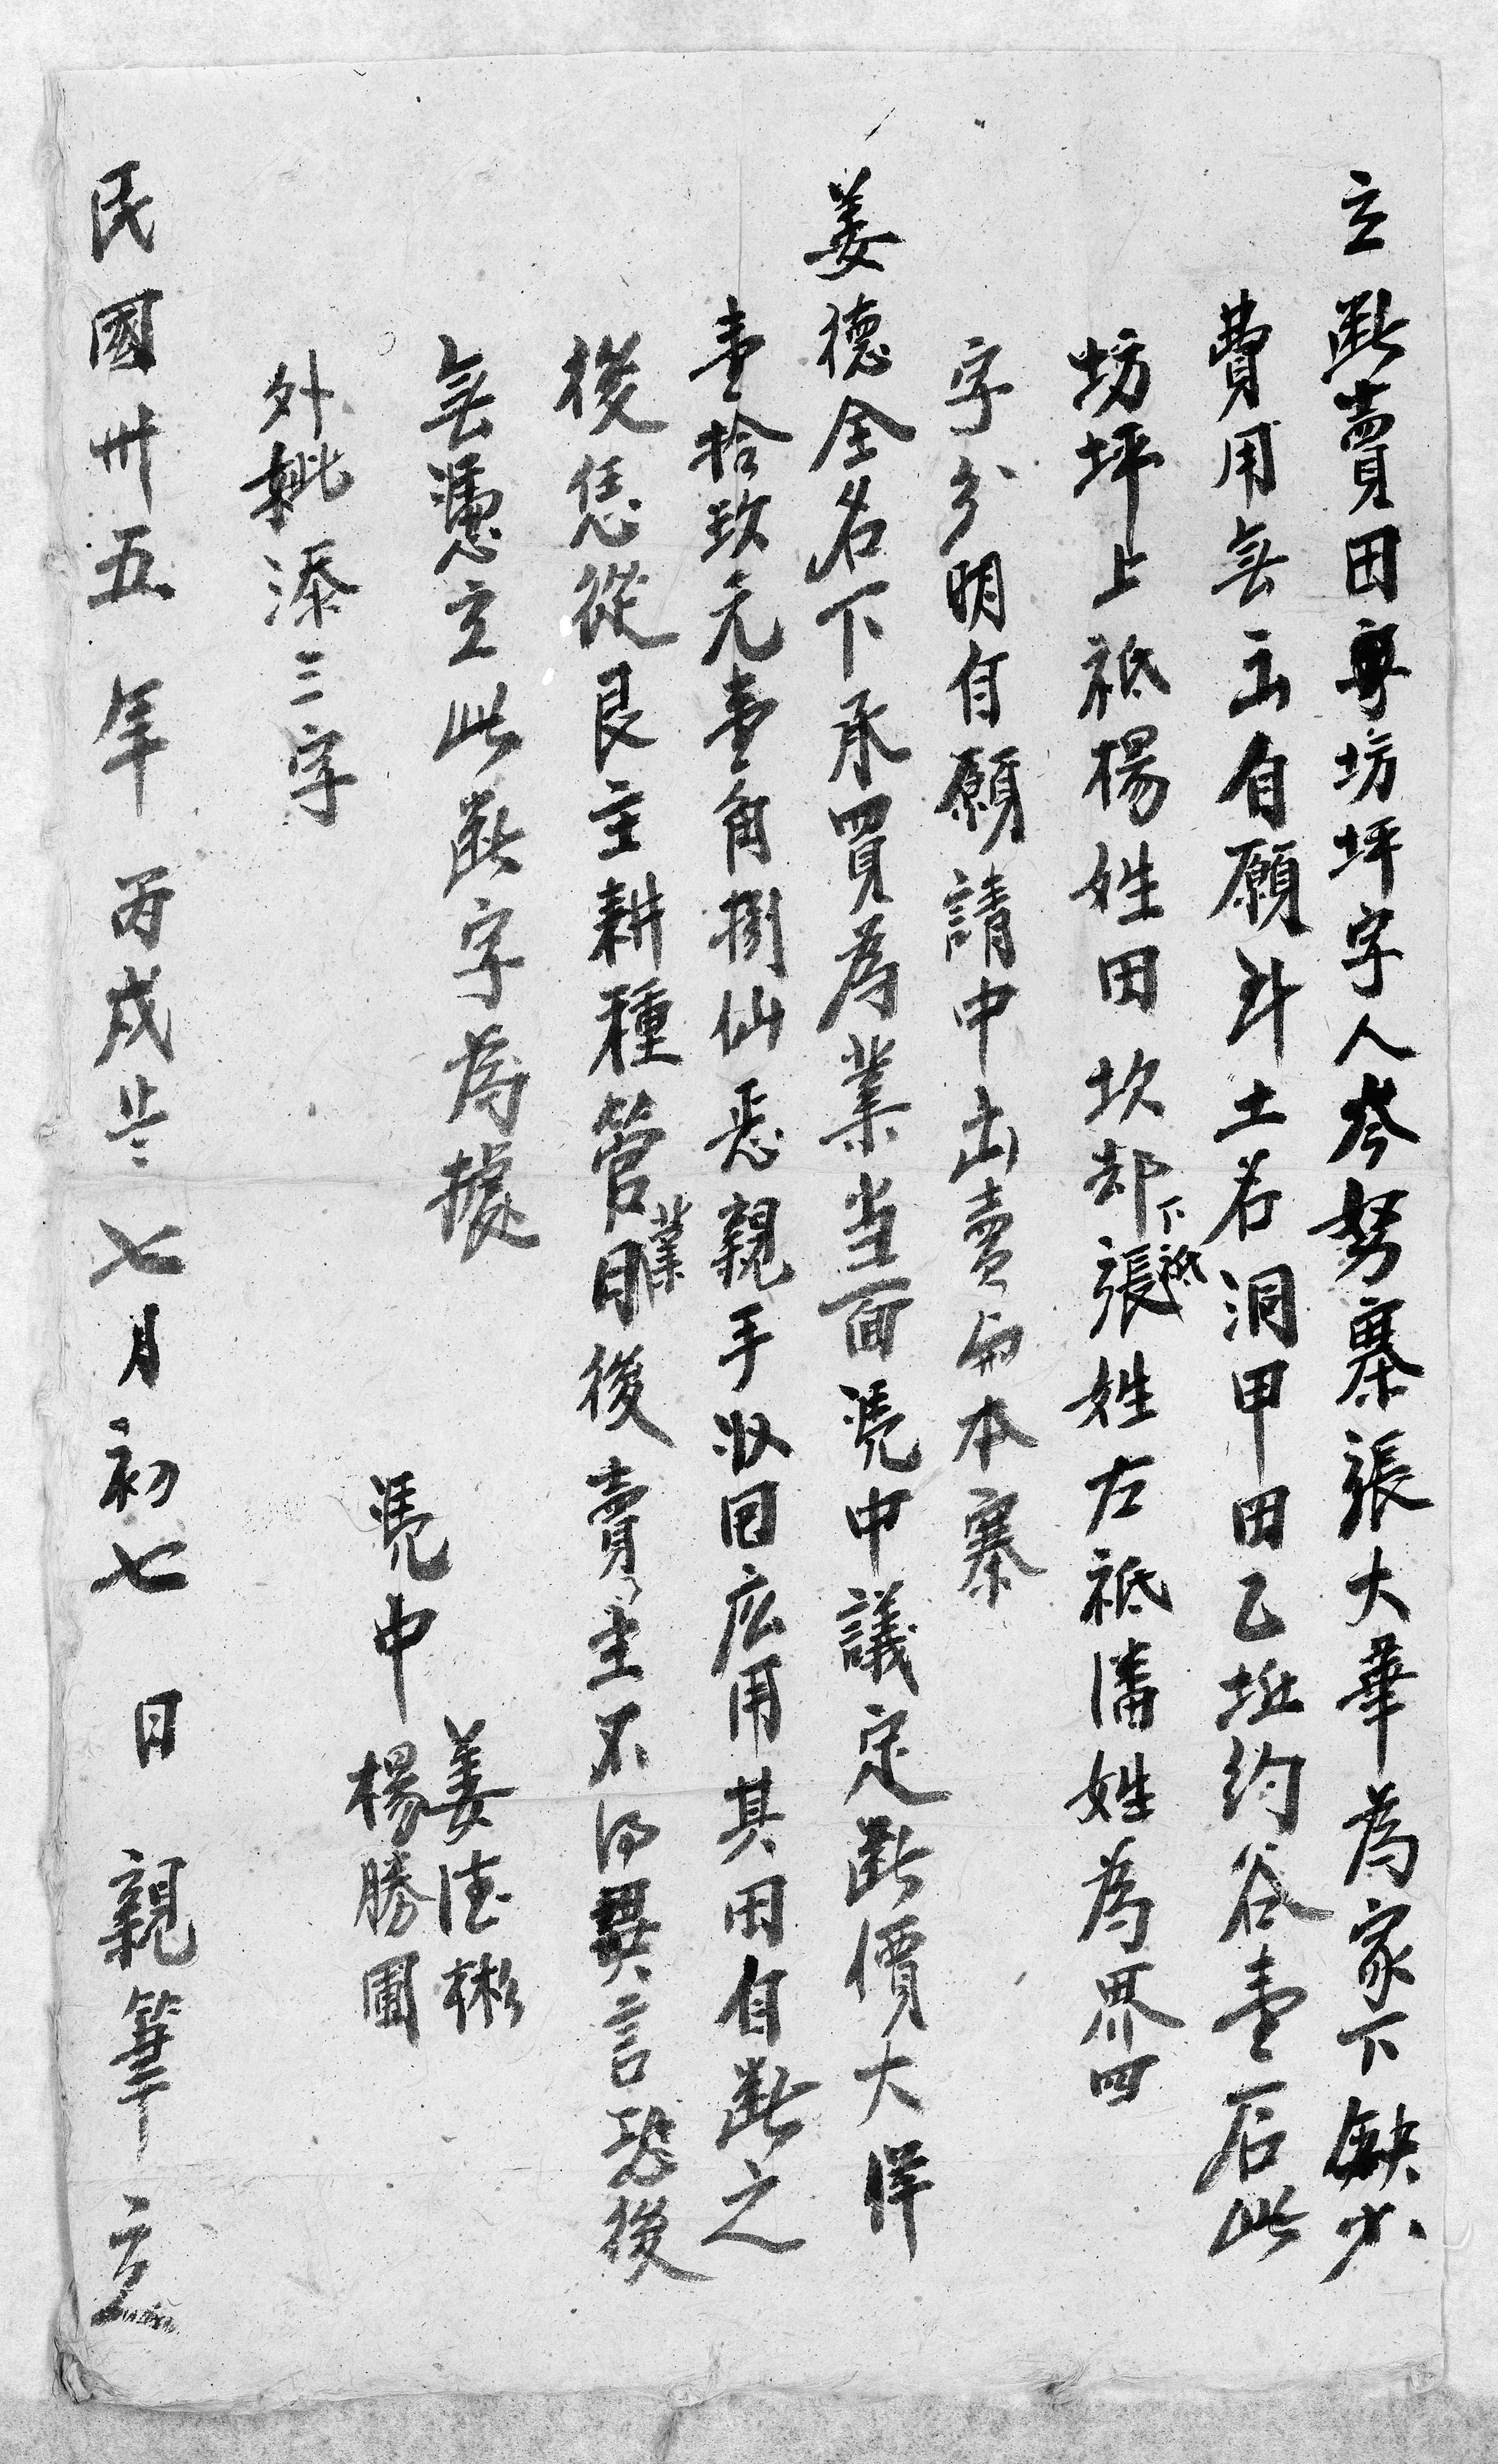 立断賣田粤坊坪字人岑努寨張大華為家下缺少
費用無出自願斗土名洞甲田乙坵約谷壹石此
坊坪上祗楊姓田坎却下祗張姓左祗潘姓為界四
字分明自願請中出賣與本寨
姜德全名下承買為業当面凴中議定断價大洋
壹拾玖元壹角捌仙悉親手收回応用其田自断之
後恁從艮主耕種管業日後賣主不得異言恐後
無憑立此断字為據
外批添三字
凴中 姜德彬
楊勝圃
民國卅五年丙戌歲七月初七日 親筆立